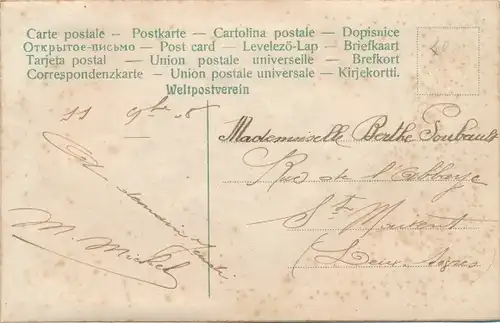 Carte postale – Postkarte – Cartolina postale – Dopisnice
Открытое-письмо – Post card – Levelező-Lap – Briefkaart
Tarjeta postal – Union postale universelle – Brefkort
Correspondenzkarte – Union postale universale – Kirjekortti.
Weltpostverein
11 9bre 8
A demain
M. Michel
Mademoiselle Berthe Soubault
Rue de l'Abbaye
St Maixent
(Deux-Sèvres)